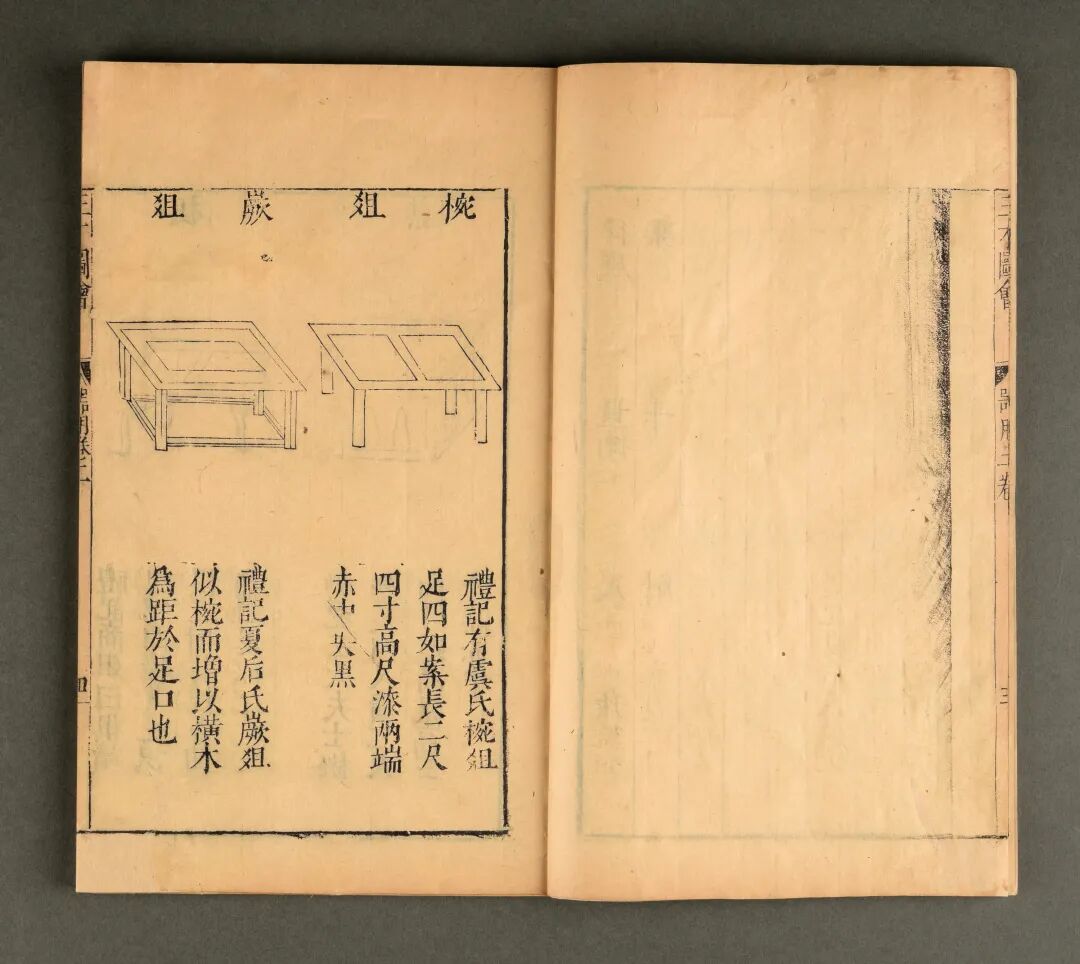 三才圖會
器用二卷
三
梡爼
禮記有虞氏梡爼
足四如案長二尺
四寸高尺漆兩端
赤中央黑
蕨爼
禮記夏后氏蕨爼
似梡而增以橫木
為距於足口也
三才圖會
四